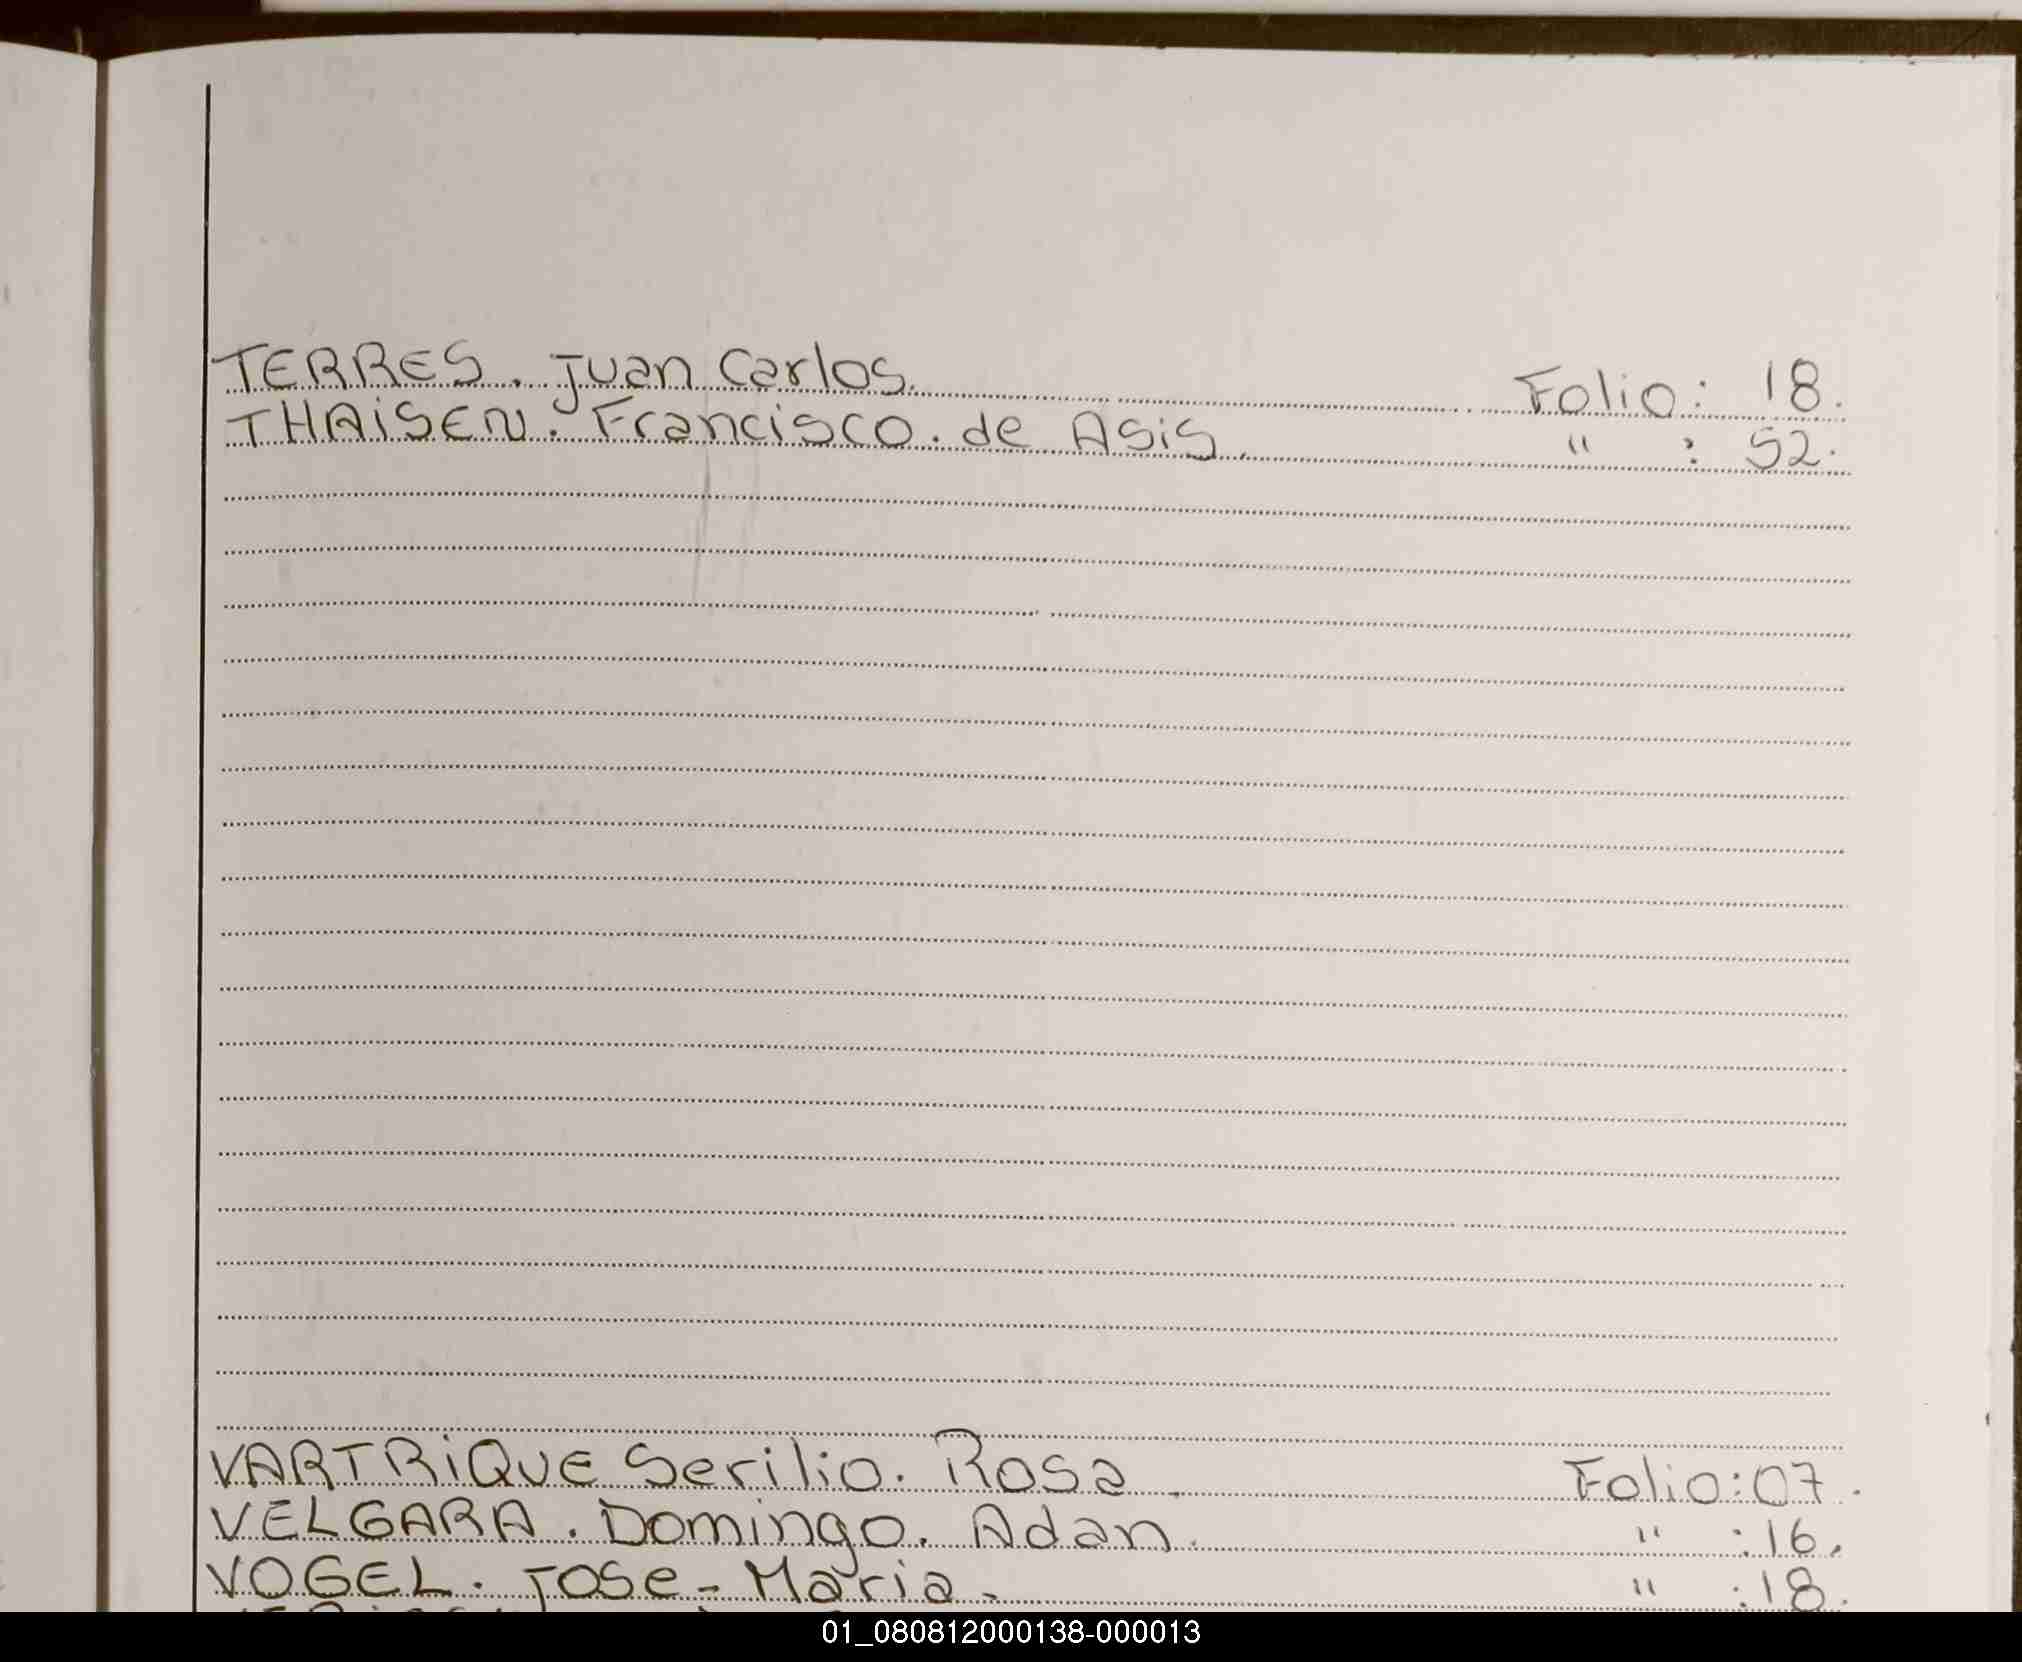 TERRES. Juan Carlos. Folio: 18.
THAISEN. Francisco. de Asis. " : 52.
VARTRIQUE Serilio. Rosa. Folio: 07.
VELGARA. Domingo. Adan. " : 16.
VOGEL. Jose - Maria. " : 18.
01_080812000138-000013